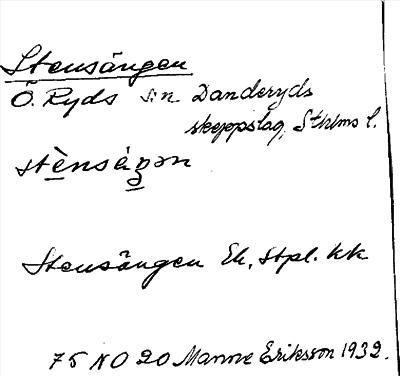 Stensängen
Ö. Ryds sn Danderyds
skeppslag, Sthlms l.
Stensängen Ek, Stpl. kk
75 NO 20 Manne Eriksson 1932.